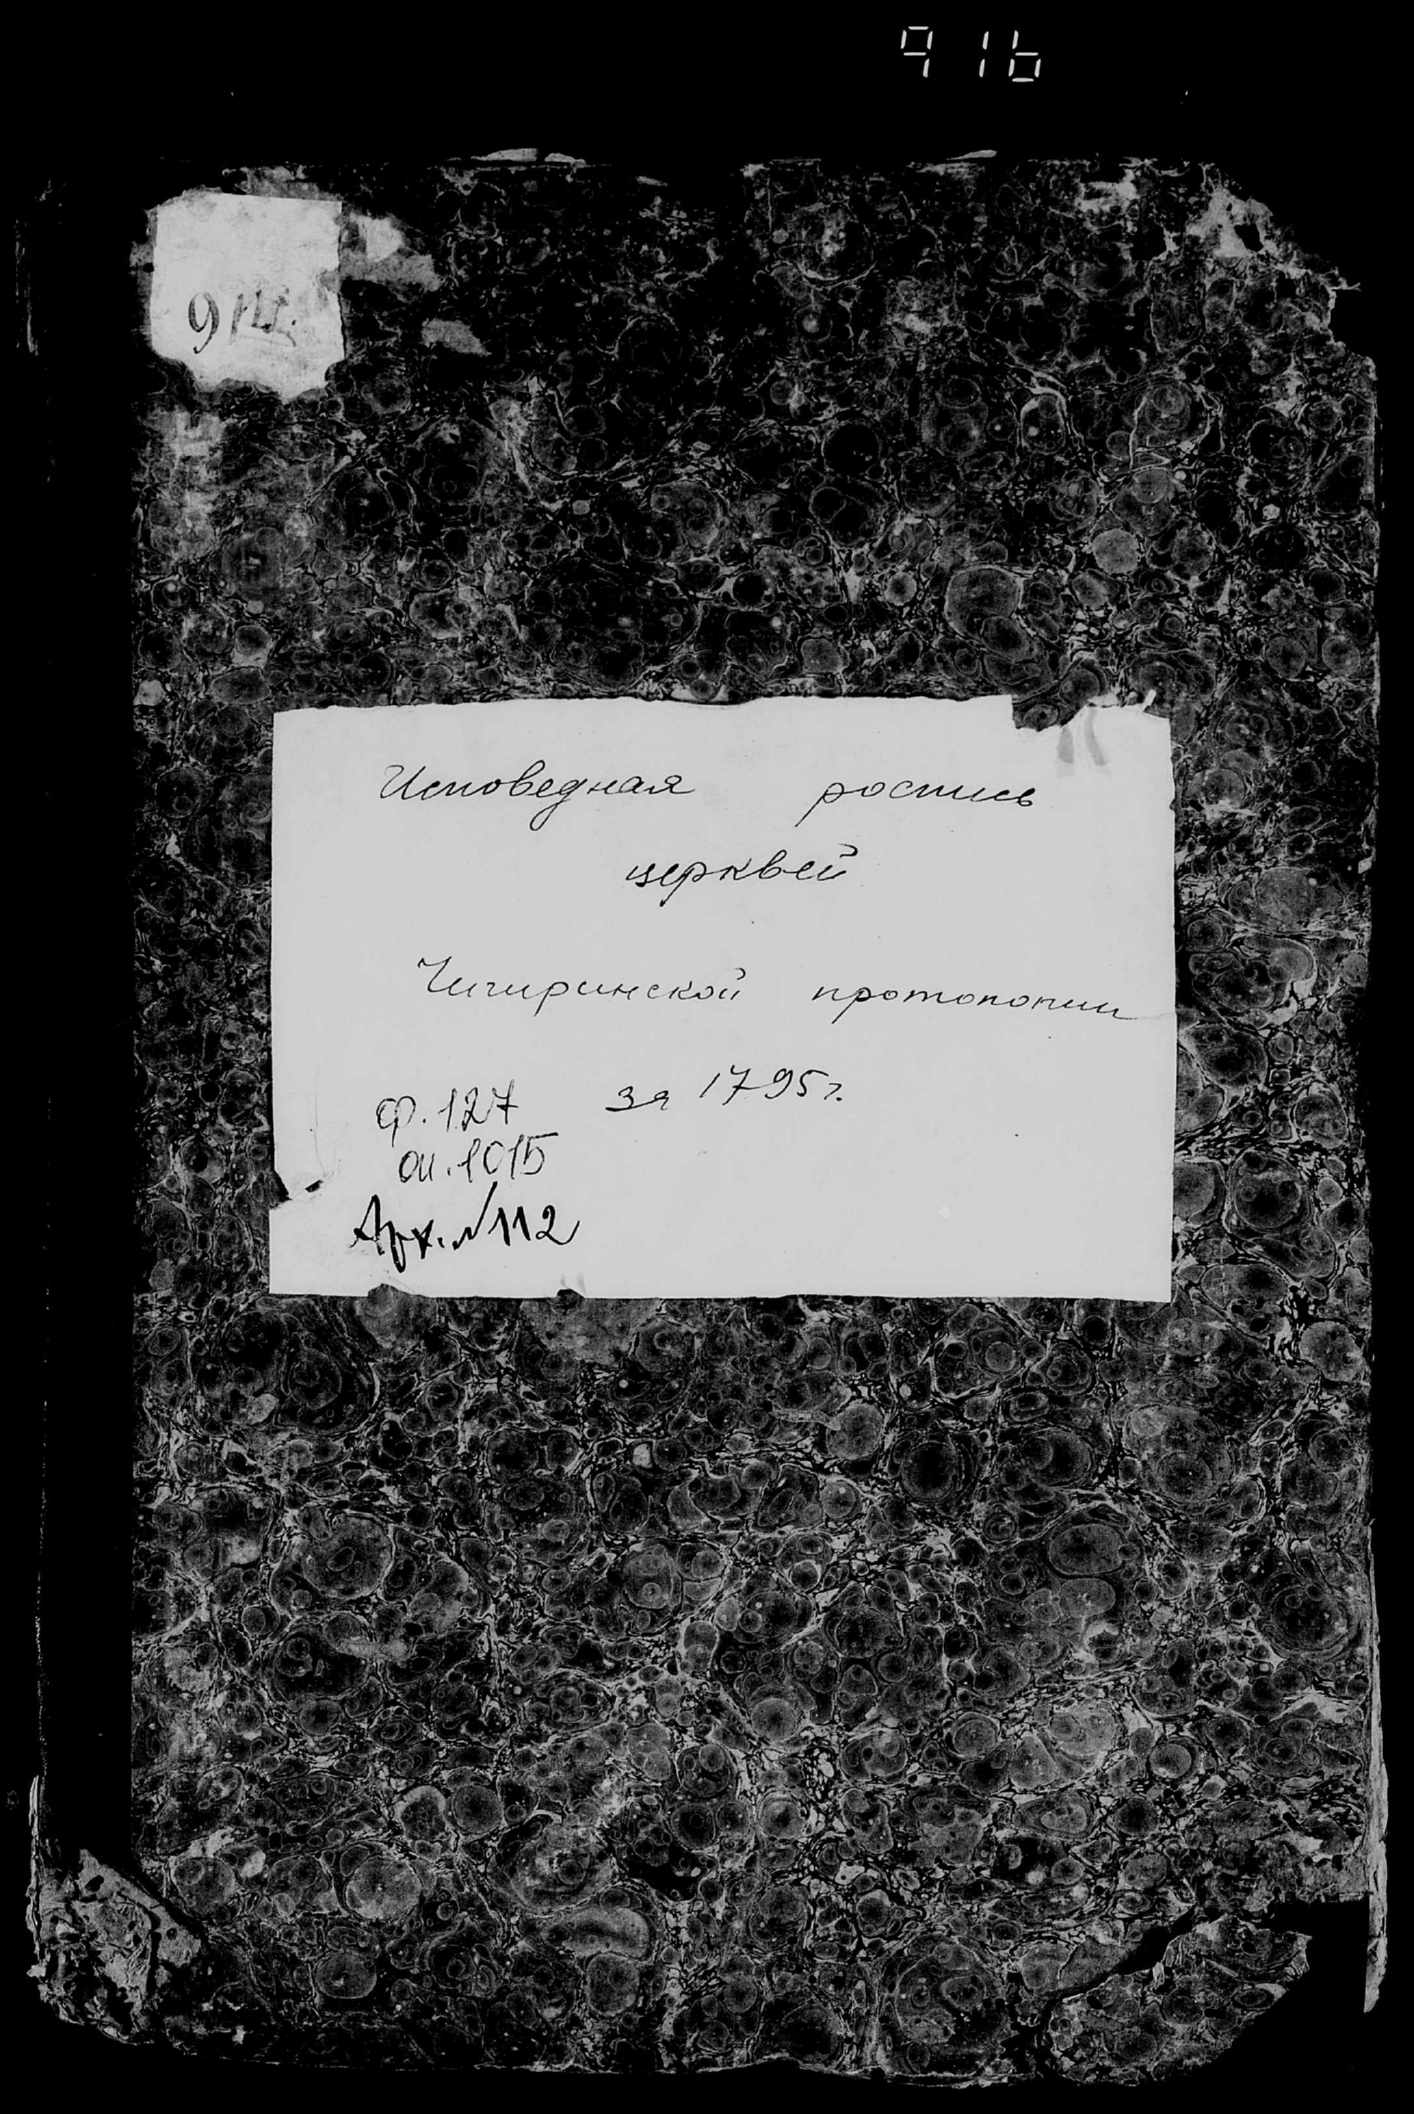 916
Исповедная роспись
церквей
Чигиринской протопопии
за 1795г.
ф. 127
оп. 1015
Арх. №112